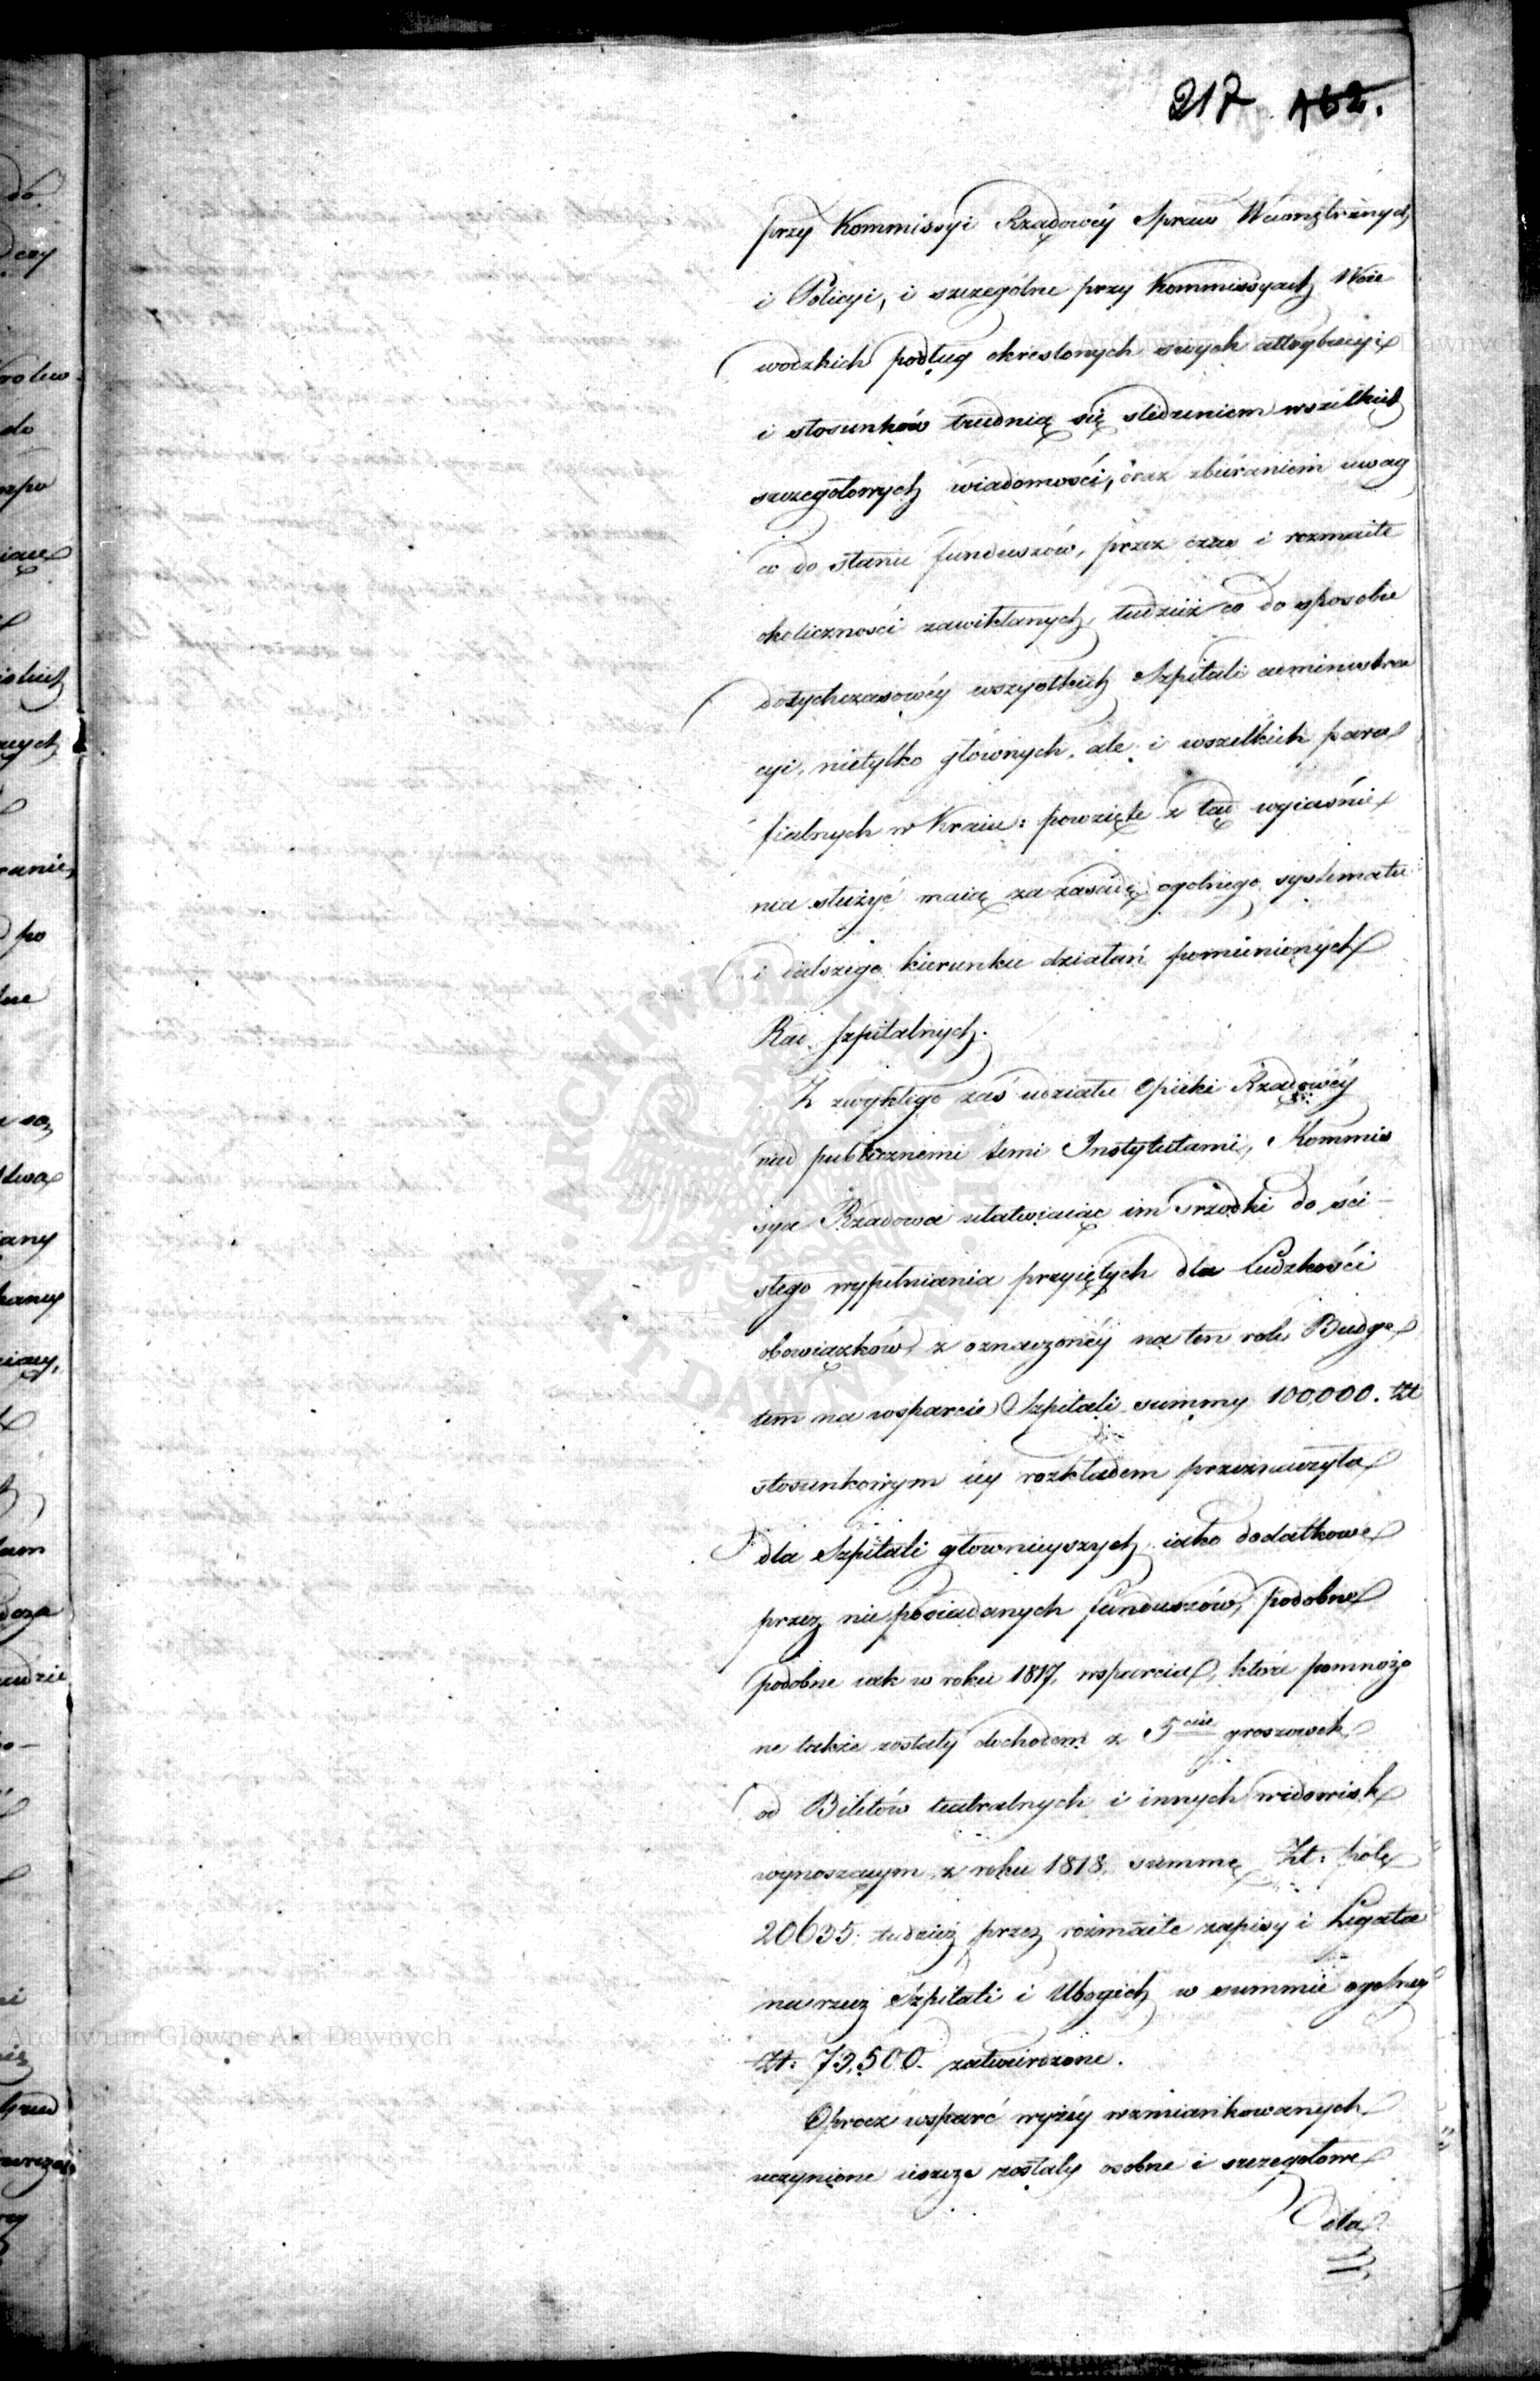 217 162.
przy Kommissyi Rządowéy Spraw Wewnętrznych
i Policyi, i szczególne przy Kommissyach Woie
wodzkich podług okreslonych swych attrybucyi
i stosunków trudnią się sledzeniem wszelkich
szczegołowych wiadomości, oraz zbieraniem uwag
co do stanu funduszów, przez czas i rozmaite
okoliczności zawikłanych, tudzież co do sposobu
dotychczasowéy wszystkich Szpitali administra
cyi, nietylko głównych, ale i wszelkich para
fialnych w Kraiu: powzięte z tąd wyiaśnie
nia służyć maią za zasadę ogolnego systematu
i dalszego kierunku działań pomienionych
Rad szpitalnych.
Z zwykłego zaś udziału Opieki Rządowéy
nad publicznemi temi Instytutami, Kommis
sya Rządowa ułatwiaiąc im srzodki do ści-
słego wypełniania przyiętych dla Ludzkości
obowiązków, z oznaczonéy na ten rok Budge
tem na wsparcie Szpitali summy 100,000. Złł
stosunkowym iey rozkładem przeznaczyła
dla Szpitali głownieyszych iako dodatkowe
przez nie posiadanych funduszów, podobne
podobne iak w roku 1817, wsparcia, które pomnożo
ne także zostały dochodem z 5 cio groszowek
od Biletów teatralnych i innych widowisk
wynoszącym z roku 1818. summę Zł: pol:
20635. tudzież przez rozmaite zapisy i Legata
na rzecz Szpitali i Ubogich w summie ogolney
Zł: 73,500. zatwierdzone.
Oprocz wsparć wyżéy wzmiankowanych
uczynione ieszcze zostały osobne i szczegołowe
dla
Archiwum Główne Akt Dawnych